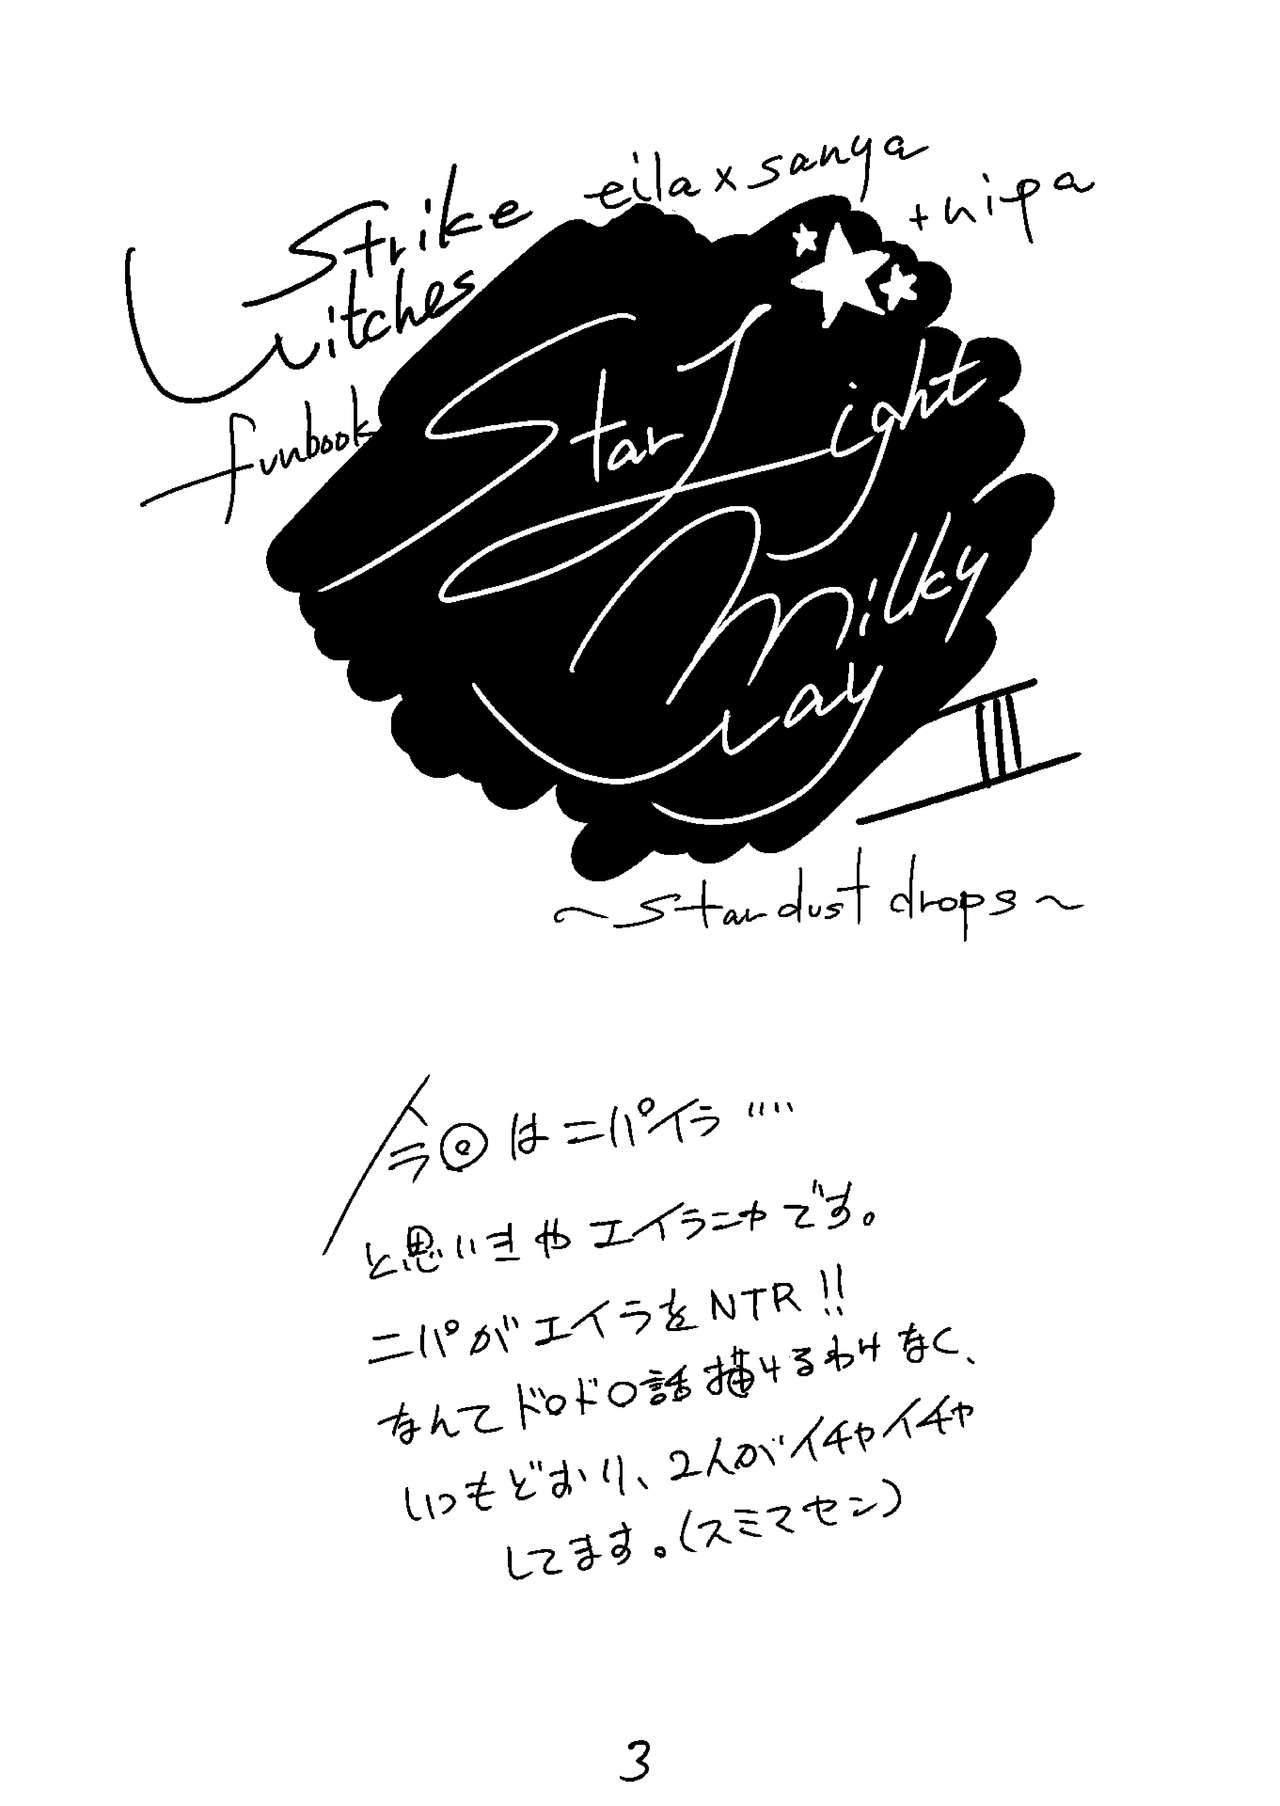 Strike
Witches
funbook
eila×sanya
+nipa
StarLight
Milky
Way
III
～stardust drops～
今回はニパイラ‥‥
と思いきやエイラニャです。
ニパがエイラをNTR!!
なんてドロドロ話描けるわけなく、
いつもどおり、2人がイチャイチャ
してます。(スミマセン)
3